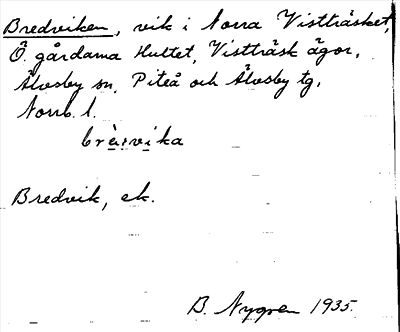 Bredviken, vik i Norra Vistträsket,
Ö. gårdarna Hultet, Vistträsk ägor,
Älvsby sn, Piteå och Älvsby tg,
Norrb. l.
brèvika
Bredvik, ek.
B. Nygren 1935.